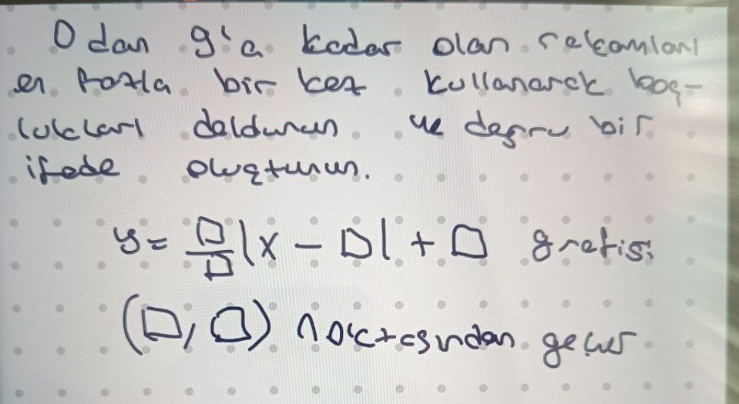 0 dan 9'a kadar olan rakamları
en fazla bir kez kullanarak boş-
lukları doldurun ve doğru bir
ifade oluşturun.
y = □/□ |x - □| + □ grafiği
(□, □) noktasından geçer